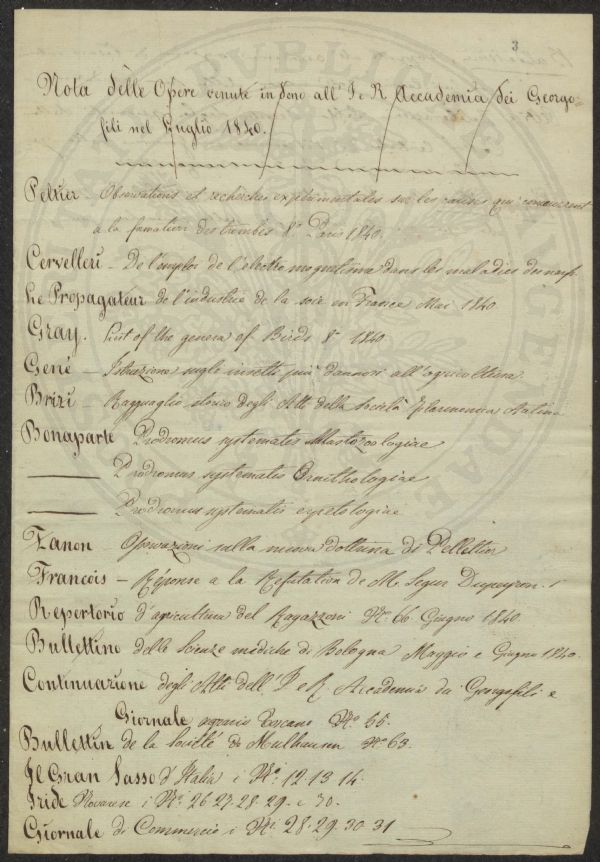 3
Nota delle Opere venute in dono all' I e R Accademia dei Georgo=
fili nel Luglio 1840.
Peltier Observations et recherches expérimentales sur les causes qui concourent
à la formation des trombes 8° Paris 1840
Cervelleri - De l'emploi de l'électro magnetisme dans les maladies
Le Propagateur de l'industrie de la soie en France Mai 1840
Gray. List of the genera of Birds 8° 1840
Gené - Istruzione sugli insetti più dannosi all'agricoltura
Brizi - Ragguaglio storico degli Atti della Società filarmonica Aretina
Bonaparte Prodromus systematis Mastozoologiae
Prodromus systematis Ornithologiae
Prodromus systematis
Zanon - Osservazioni sulla nuova dottrina di Pelletier
François - Réponse a la Refutation de M. Segur Dupeyron
Repertorio d'agricoltura del Ragazzoni N.° 66 Giugno 1840.
Bullettino delle Scienze mediche di Bologna Maggio e Giugno 1840.
Continuazione degli Atti dell' I e R Accademia dei Georgofili e
Giornale agrario toscano N.° 55.
Bulletin de la Société de Mulhausen N.° 63.
Il Gran Sasso d'Italia i N.i 12.13.14.
Iride Novarese i N.i 26.27.28.29. e 30.
Giornale di Commercio i N.i 28.29.30.31